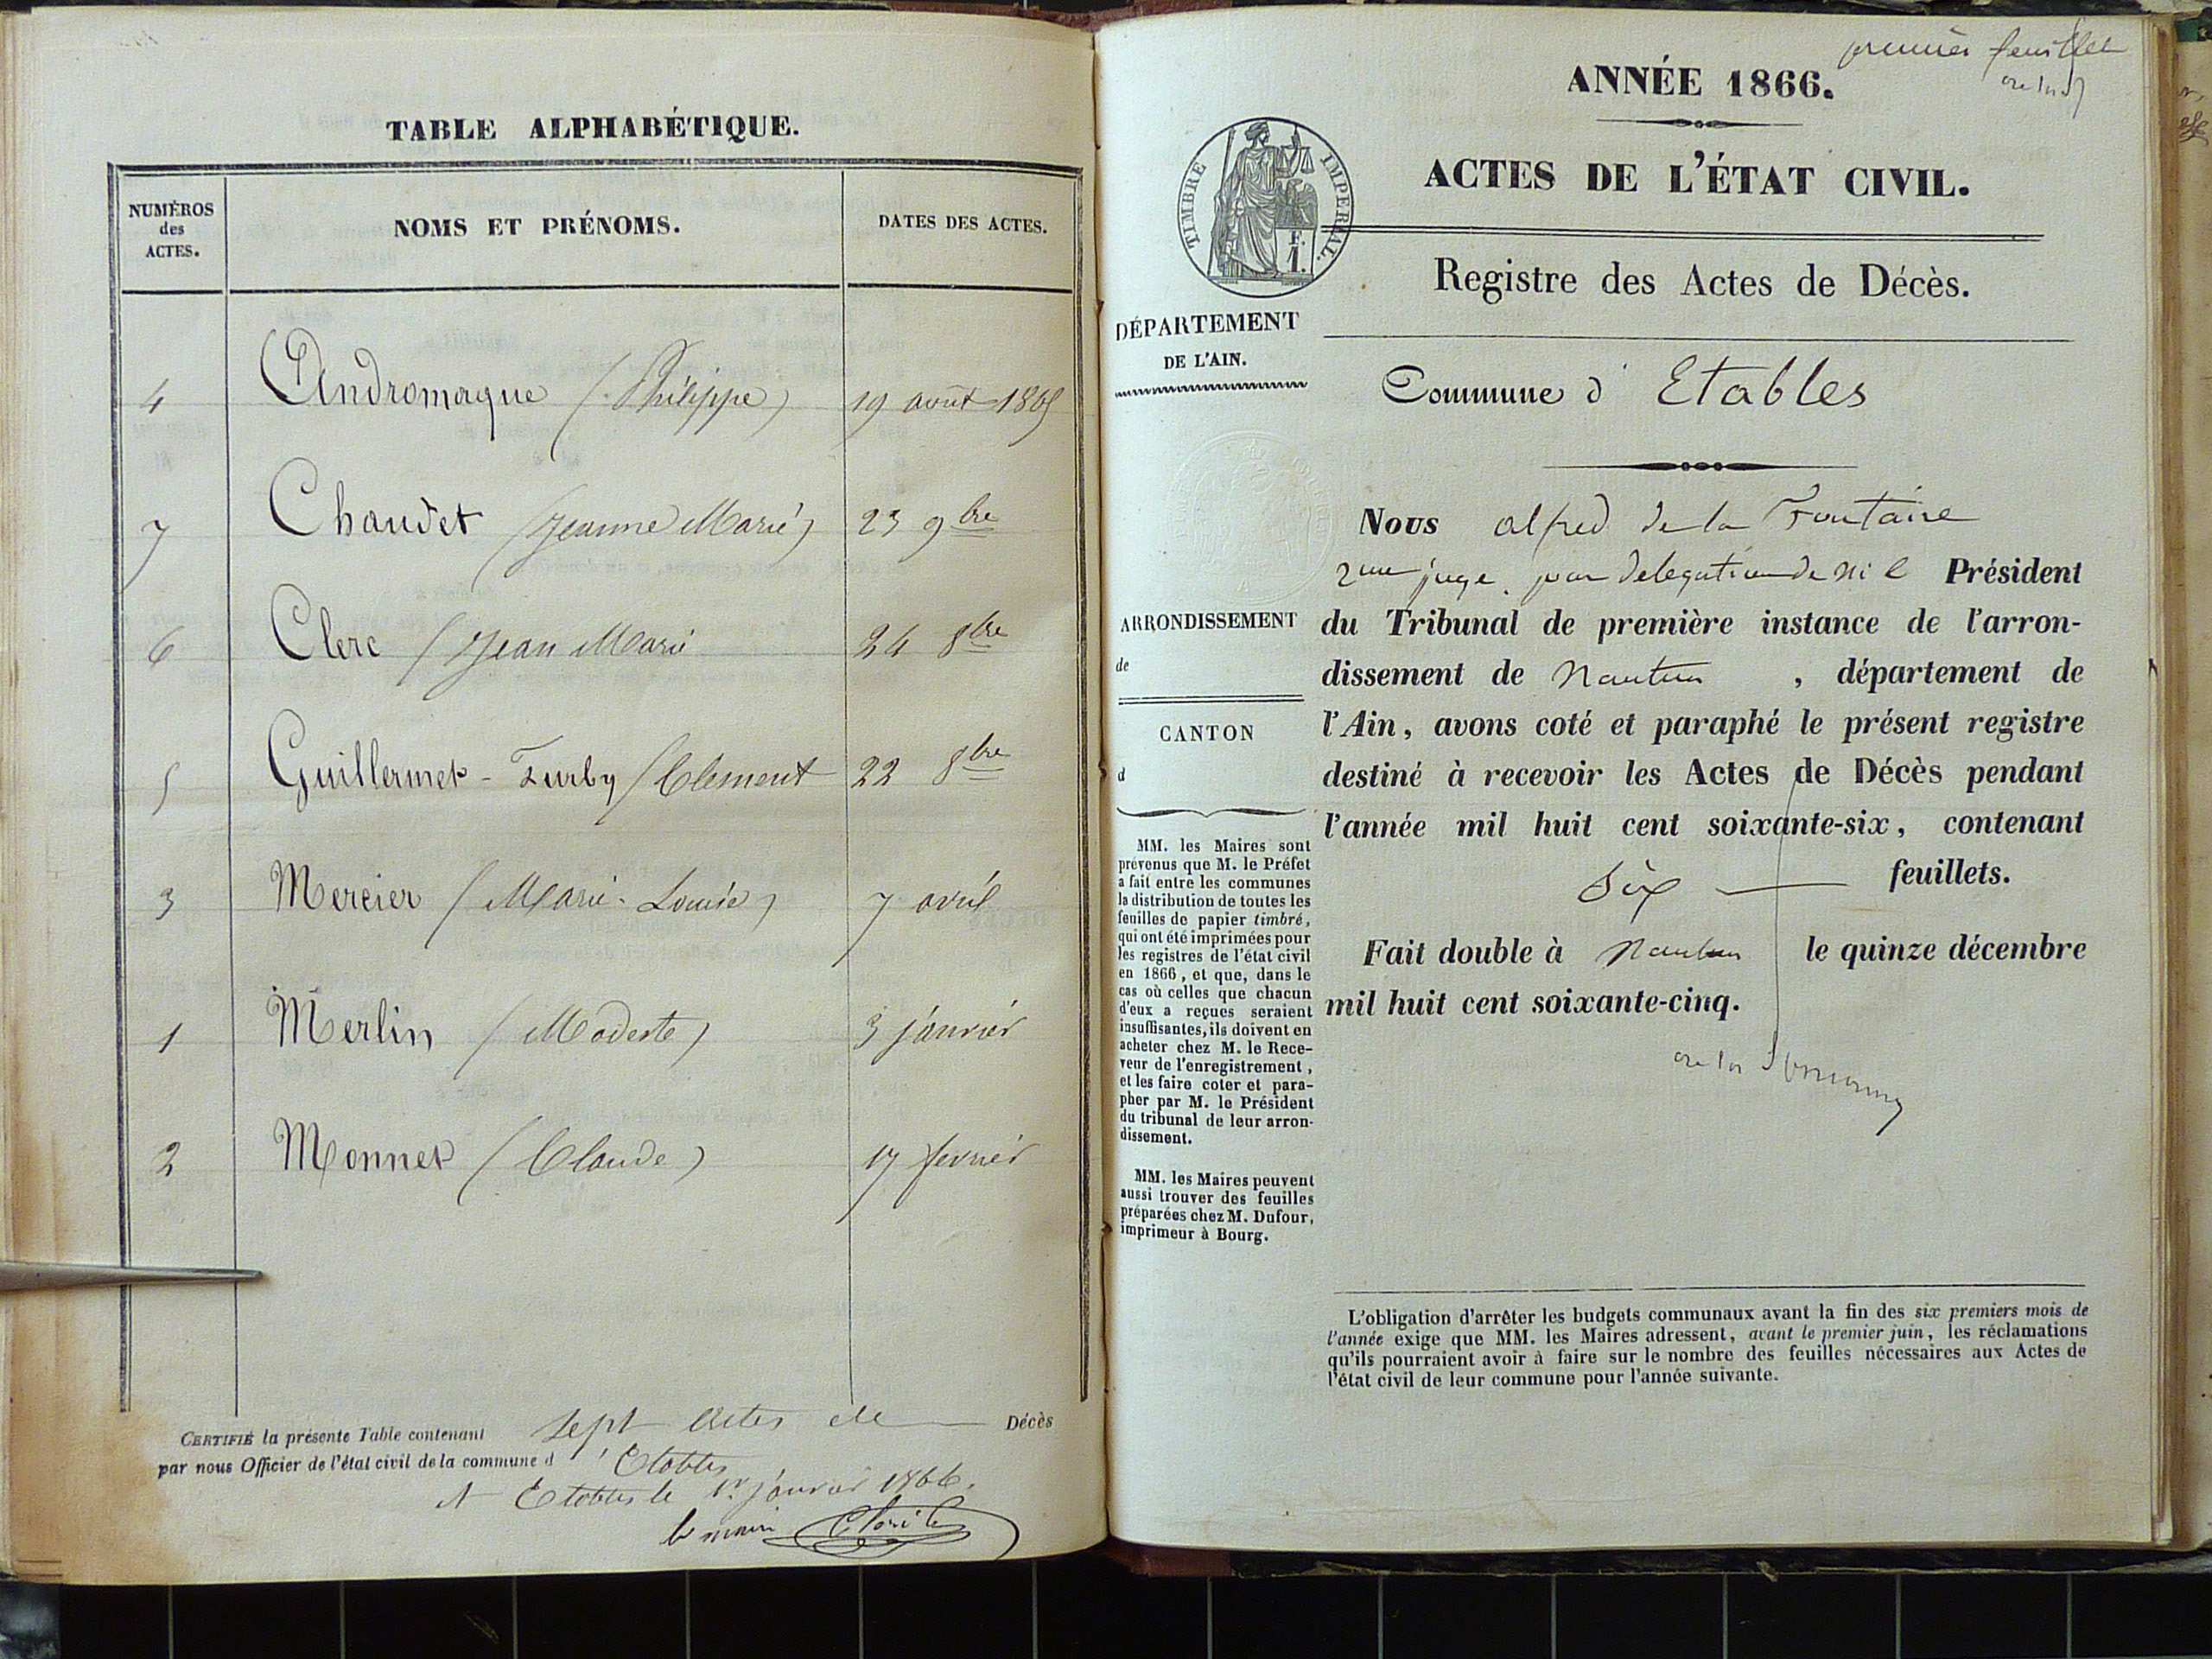 TABLE ALPHABÉTIQUE.
NUMÉROS des ACTES.
NOMS ET PRÉNOMS.
DATES DES ACTES.
4 Andromaque (Philippe) 19 août 1865
7 Chaudet (Jeanne Marie) 23 9bre
6 Clerc (Jean Marie 24 8bre
5 Guillermet - Furby (Clement 22 8bre
3 Mercier (Marie-Louise) 7 avril
1 Merlin (Modeste) 3 janvier
2 Monnet (Claude) 17 fevrier
CERTIFIÉ la présente Table contenant sept actes de Décès
par nous Officier de l'état civil de la commune d'Etables
A Etables le 1er janvier 1866.
le maire
premier feuillet
ANNÉE 1866.
ACTES DE L'ÉTAT CIVIL.
TIMBRE IMPERIAL.
F.
1.
Registre des Actes de Décès.
DÉPARTEMENT
DE L'AIN.
Commune d'Etables
ARRONDISSEMENT
de
CANTON
d
MM. les Maires sont
prévenus que M. le Préfet
a fait entre les communes
la distribution de toutes les
feuilles de papier timbré,
qui ont été imprimées pour
les registres de l'état civil
en 1866, et que, dans le
cas où celles que chacun
d'eux a reçues seraient
insuffisantes, ils doivent en
acheter chez M. le Rece-
veur de l'enregistrement,
et les faire coter et para-
pher par M. le Président
du tribunal de leur arron-
dissement.
MM. les Maires peuvent
aussi trouver des feuilles
préparées chez M. Dufour,
imprimeur à Bourg.
Nous alfred de la Fontaine
2me juge par delegation de Mr le Président
du Tribunal de première instance de l'arron-
dissement de Nantua, département de
l'Ain, avons coté et paraphé le présent registre
destiné à recevoir les Actes de Décès pendant
l'année mil huit cent soixante-six, contenant
six feuillets.
Fait double à Nantua le quinze décembre
mil huit cent soixante-cinq.
L'obligation d'arrêter les budgets communaux avant la fin des six premiers mois de
l'année exige que MM. les Maires adressent, avant le premier juin, les réclamations
qu'ils pourraient avoir à faire sur le nombre des feuilles nécessaires aux Actes de
l'état civil de leur commune pour l'année suivante.